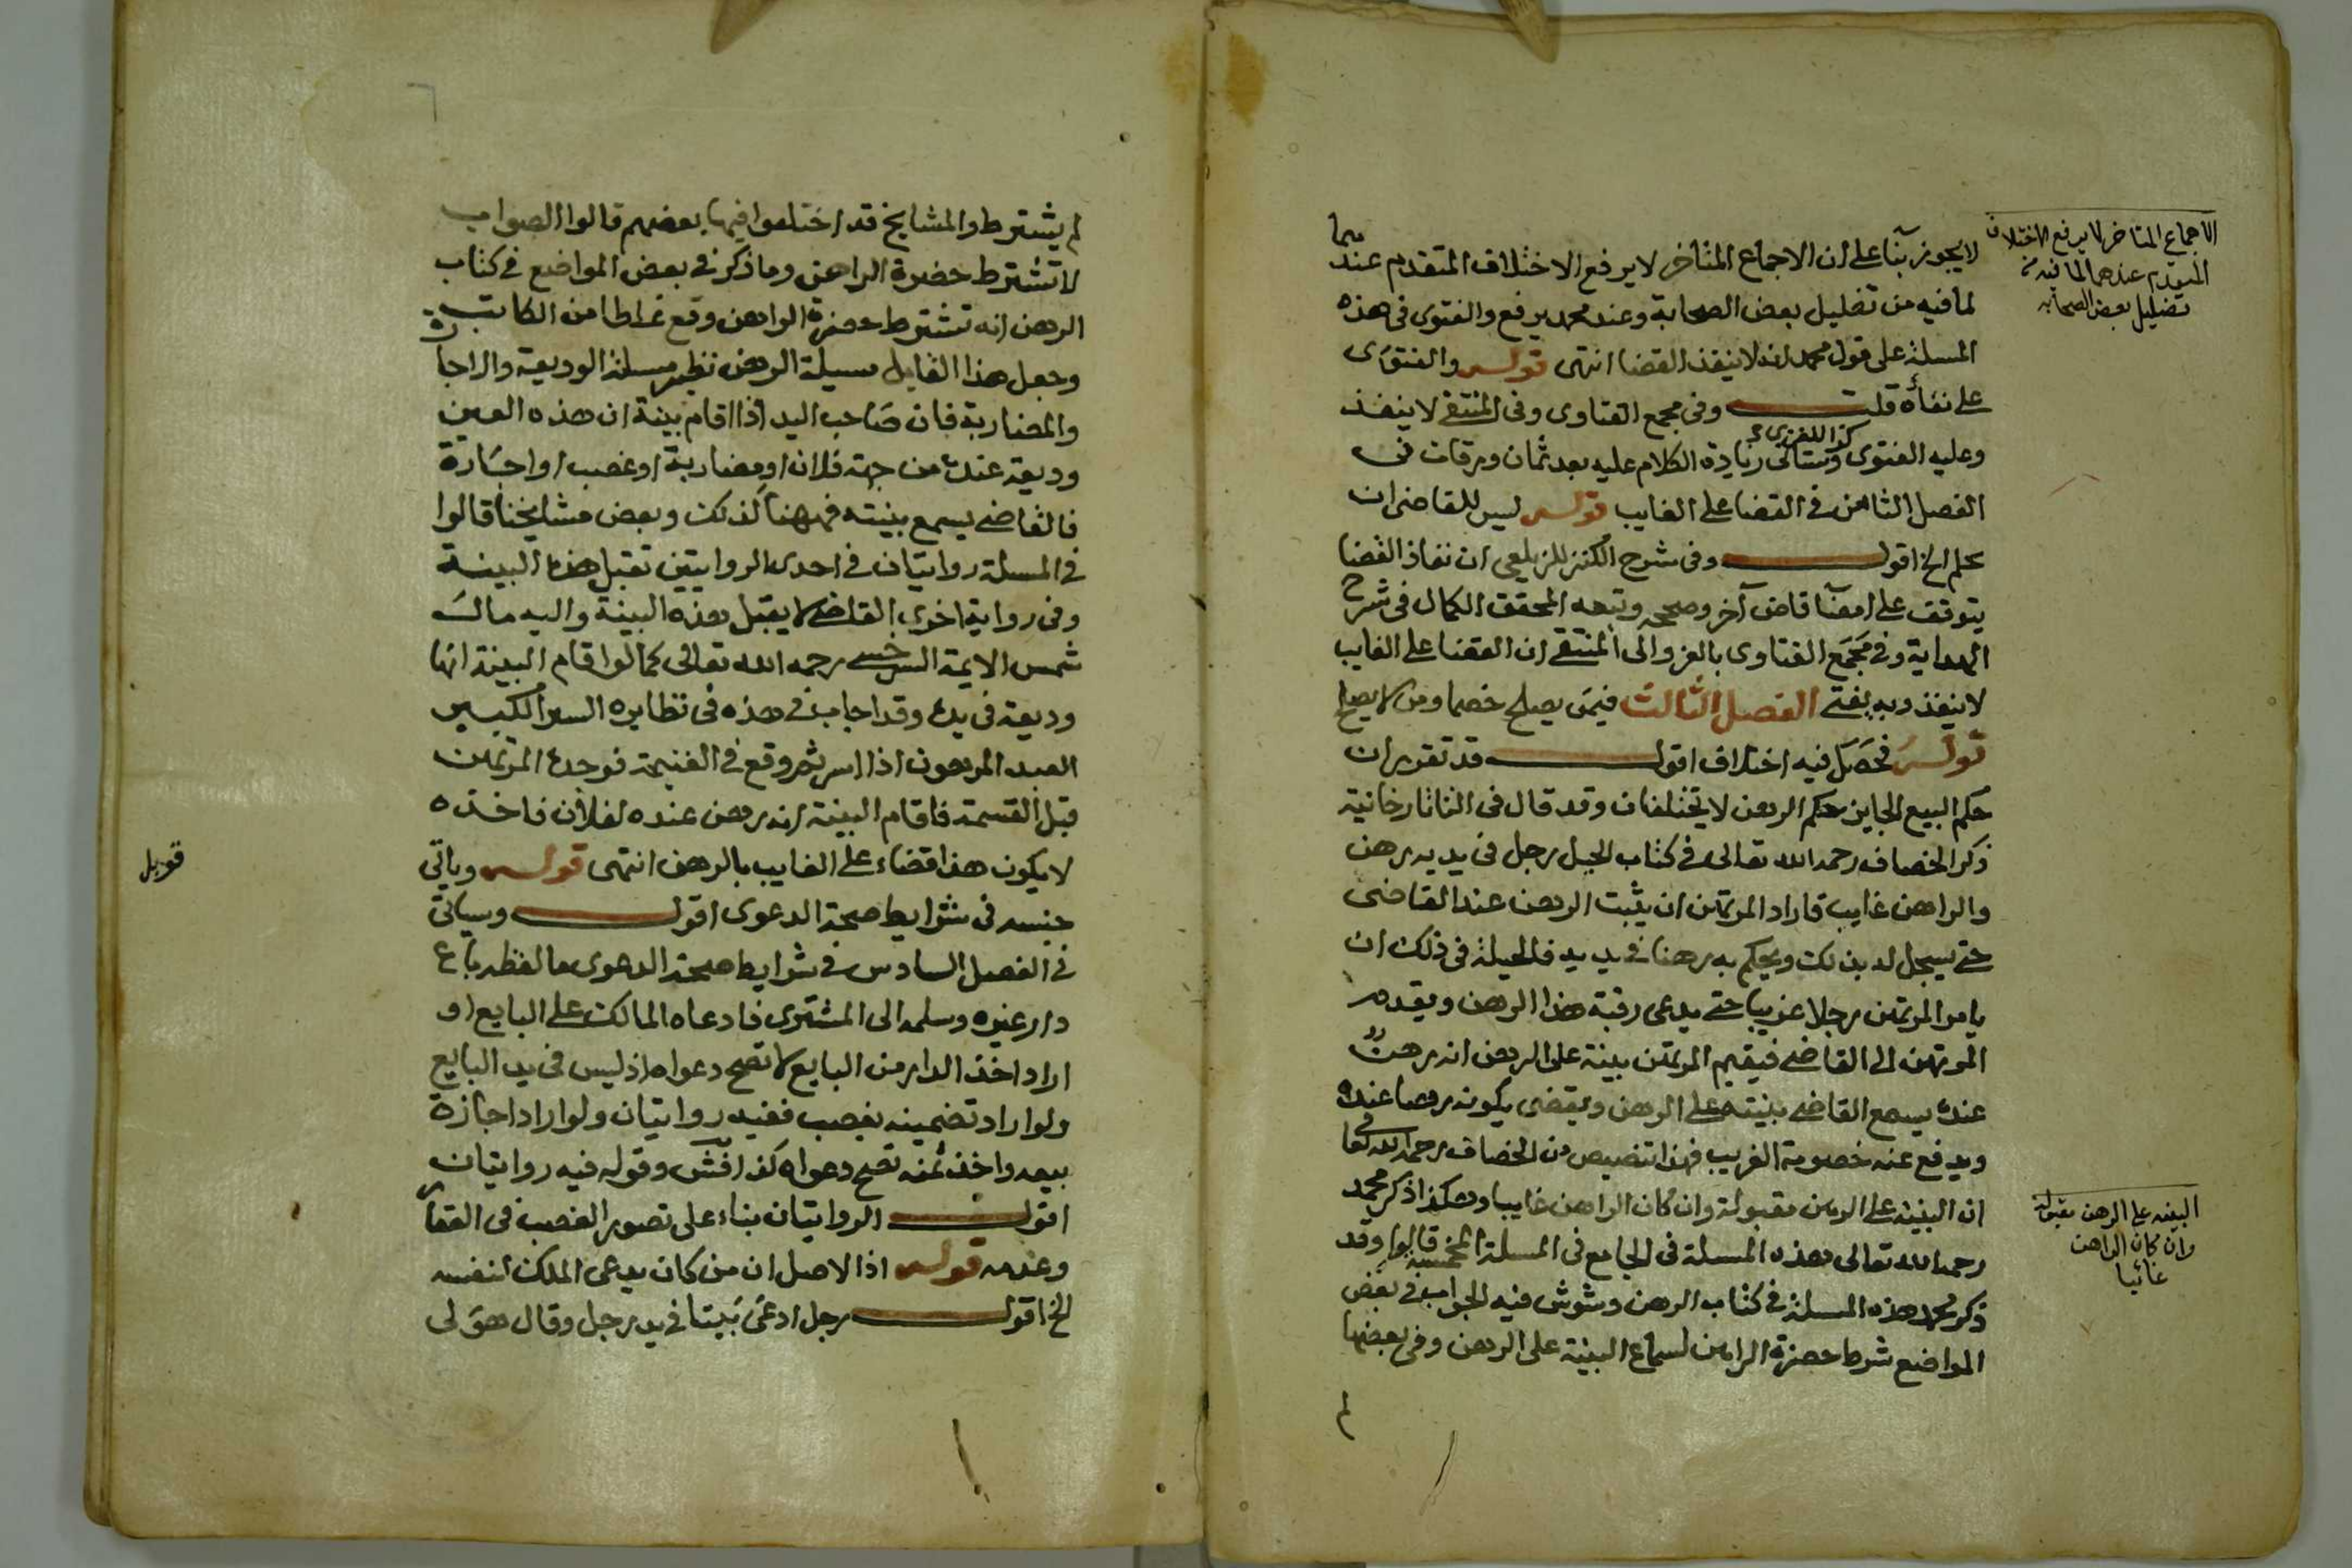 لا يجوز بنآ على ان الاجماع المتأخر لا يرفع الاختلاف المتقدم عندهما
لما فيه من تضليل بعض الصحابة وعند محمد يرفع والفتوى في هذه
المسلة على قول محمد انه لا ينفذ القضا انتهى قوله والفتوى
على نفاذه قلت وفى مجمع الفتاوى وفى المنتقى لا ينفذ
وعليه الفتوى وستاتى زيادة الكلام عليه بعد ثمان ورقات فى
الفصل الثامن فى القضا على الغايب قوله ليس للقاضى ان
الخ اقول وفى شرح الكنز للزيلعى ان نفاذ القضا
يتوقف على امضآ قاض آخر وصححه وتبعه المحقق الكمال فى شرح
الهداية وفى مجمع الفتاوى بالعزو الى المنتقى ان القضا على الغايب
لا ينفذ وبه يفتى الفصل الثالث فيمن يصلح خصما ومن لا يصلح
قوله فحصل فيه اختلاف اقول قد تقرر ان
حكم البيع الجايز حكم الرهن لا يختلفان وقد قال فى التاتارخانية
ذكر الخصاف رحمه الله تعالى فى كتاب الحيل رجل فى يديه رهن
والراهن غايب فاراد المرتهن ان يثبت الرهن عند القاضى
حتى يسجل له بذلك ويحكم به رهنا فى يديه فالحيلة فى ذلك ان
يامر المرتهن رجلا غريبا حتى يدعى رقبة هذا الرهن ويقدم
المرتهن الى القاضى فيقيم المرتهن بينة على الرهن انه رهن
عنده يسمع القاضى بينته على الرهن ويقضى بكونه رهنا عنده
ويدفع عنه خصومة الغريب فهذا تنصيص من الخصاف رحمه الله تعالى
ان البينة على الرهن مقبولة وان كان الراهن غايبا وهكذا ذكر محمد
رحمه الله تعالى هذه المسلة فى الجامع فى المسلة المخمسة قالوا وقد
ذكر محمد هذه المسلة فى كتاب الرهن وشوش فيه الجواب فى بعض
المواضع شرط حضرة الراهن لسماع البينة على الرهن وفى بعضها
لم
الاجماع المتاخر لا يرفع الاختلاف
المتقدم عندهما لما فيه من
تضليل بعض الصحابه
البينه على الرهن مقبوله
وان كان الراهن
غائبا
لم يشترط والمشايخ قد اختلفوا فيها بعضهم قالوا الصواب
لا تشترط حضرة الراهن وما ذكر فى بعض المواضع فى كتاب
الرهن انه تشترط حضرة الراهن وقع غلطا من الكاتب
وجعل هذا القايل مسيلة الرهن نظير مسلة الوديعة والاجارة
والمضاربة فان صاحب اليد اذا اقام بينة ان هذه العين
وديعة عنده من جهة فلان او مضاربة او غصب او اجارة
فالقاضى يسمع بينته فههنا كذلك وبعض مشايخنا قالوا
فى المسلة روايتان فى احدى الروايتين تقبل هذه البينة
وفى رواية اخرى القاضى لا يقبل هذه البينة واليه مال
شمس الايمة السرخسى رحمه الله تعالى كما لو اقام البينة انها
وديعة فى يده وقد اجاب فى هذه فى نظايره السير الكبير
العبد المرهون اذا اسر ثم وقع فى الغنيمة فوجده المرتهن
قبل القسمة فاقام البينة انه رهن عنده لفلان فاخذه
لا يكون هذا قضاء على الغايب بالرهن انتهى قوله وياتى
جنسه فى شرايط صحة الدعوى اقول وسياتى
فى الفصل السادس فى شرايط صحة الدعوى ما لفظه باع
دار غيره وسلمه الى المشترى فادعاه المالك على البايع او
اراد اخذ الدار من البايع لا تصح دعواه اذ ليس فى يد البايع
ولو اراد تضمينه بغصب ففيه روايتان ولو اراد اجازة
بيعه واخذ ثمنه تصح دعواه كذا فش وقوله فيه روايتان
اقول الروايتان بناء على تصور الغصب فى العقار
وعدمه قوله اذ الاصل ان من كان يدعى الملك لنفسه
الخ اقول رجل ادعى بيتا فى يد رجل وقال هو لى
قوبل